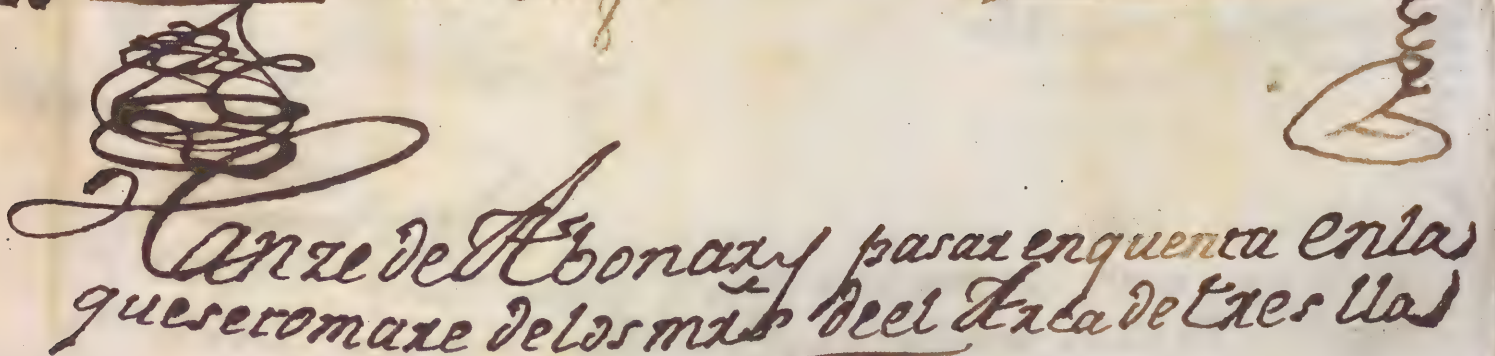 Hanze de Abonar y pasar enquenta enla
que setomare delos mrs deel Arca de tres lla